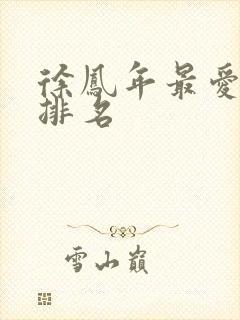 徐鳳年最愛
排名
雪山巔